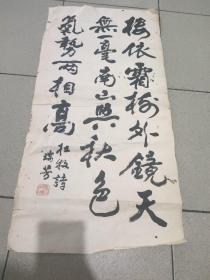 楼依霜樹外鏡天
無一毫南山與秋色
氣勢两相高
杜牧詩
瑞芳